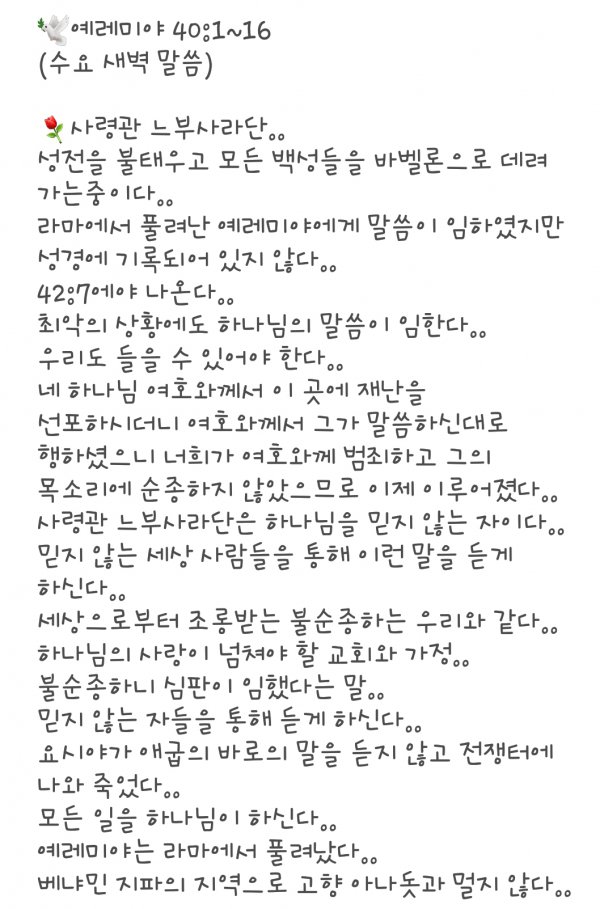 🕊️예레미야 40:1~16
(수요 새벽 말씀)
🌹사령관 느부사라단..
성전을 불태우고 모든 백성들을 바벨론으로 데려
가는중이다..
라마에서 풀려난 예레미야에게 말씀이 임하였지만
성경에 기록되어 있지 않다..
42:7에야 나온다..
최악의 상황에도 하나님의 말씀이 임한다..
우리도 들을 수 있어야 한다..
네 하나님 여호와께서 이 곳에 재난을
선포하시더니 여호와께서 그가 말씀하신대로
행하셨으니 너희가 여호와께 범죄하고 그의
목소리에 순종하지 않았으므로 이제 이루어졌다..
사령관 느부사라단은 하나님을 믿지 않는 자이다..
믿지 않는 세상 사람들을 통해 이런 말을 듣게
하신다..
세상으로부터 조롱받는 불순종하는 우리와 같다..
하나님의 사랑이 넘쳐야 할 교회와 가정..
불순종하니 심판이 임했다는 말..
믿지 않는 자들을 통해 듣게 하신다..
요시야가 애굽의 바로의 말을 듣지 않고 전쟁터에
나와 죽었다..
모든 일을 하나님이 하신다..
예레미야는 라마에서 풀려났다..
베냐민 지파의 지역으로 고향 아나돗과 멀지 않다..